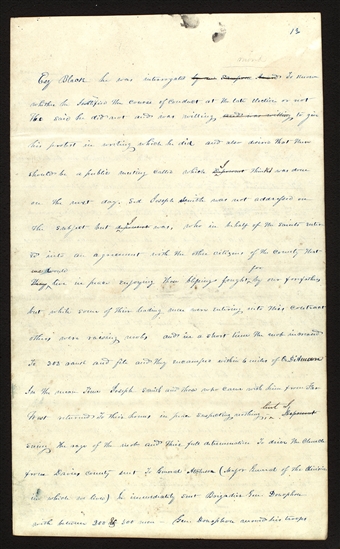 13
Esq Black he was interrogated by an Campson to know
whether he Justifies the course of conduct at the late election or not
He said he did not and was willing, and was willing, to give
his protest in writing which he did and also desired that there
should be a public meeting called which I deponent thinks was done
on the next day. Said Joseph Smith was not addressed on
the subject but I deponent was, who in behalf of the saints enter
ed into an agreement with the other citizens of the County that
we would
they live in peace enjoying those blessings fought for by our forefathers
but while some of their leading men were entering into this contract
others were raising mobs and in a short time the mob increased
to 302 rank and file and they encamped within 6 miles of Diahman
In the mean time Joseph Smith and those who came with him from Far
West returned to their homes in peace suspecting nothing but I Deponent
seeing the rage of the mob and their full determination to drive the Church
from Davies County sent to General Atchison (Major General of the division
in which we live) he immediately sent Brigadier Gen. Donophon
with between 200 & 300 men Gen. Donophon moved his troops